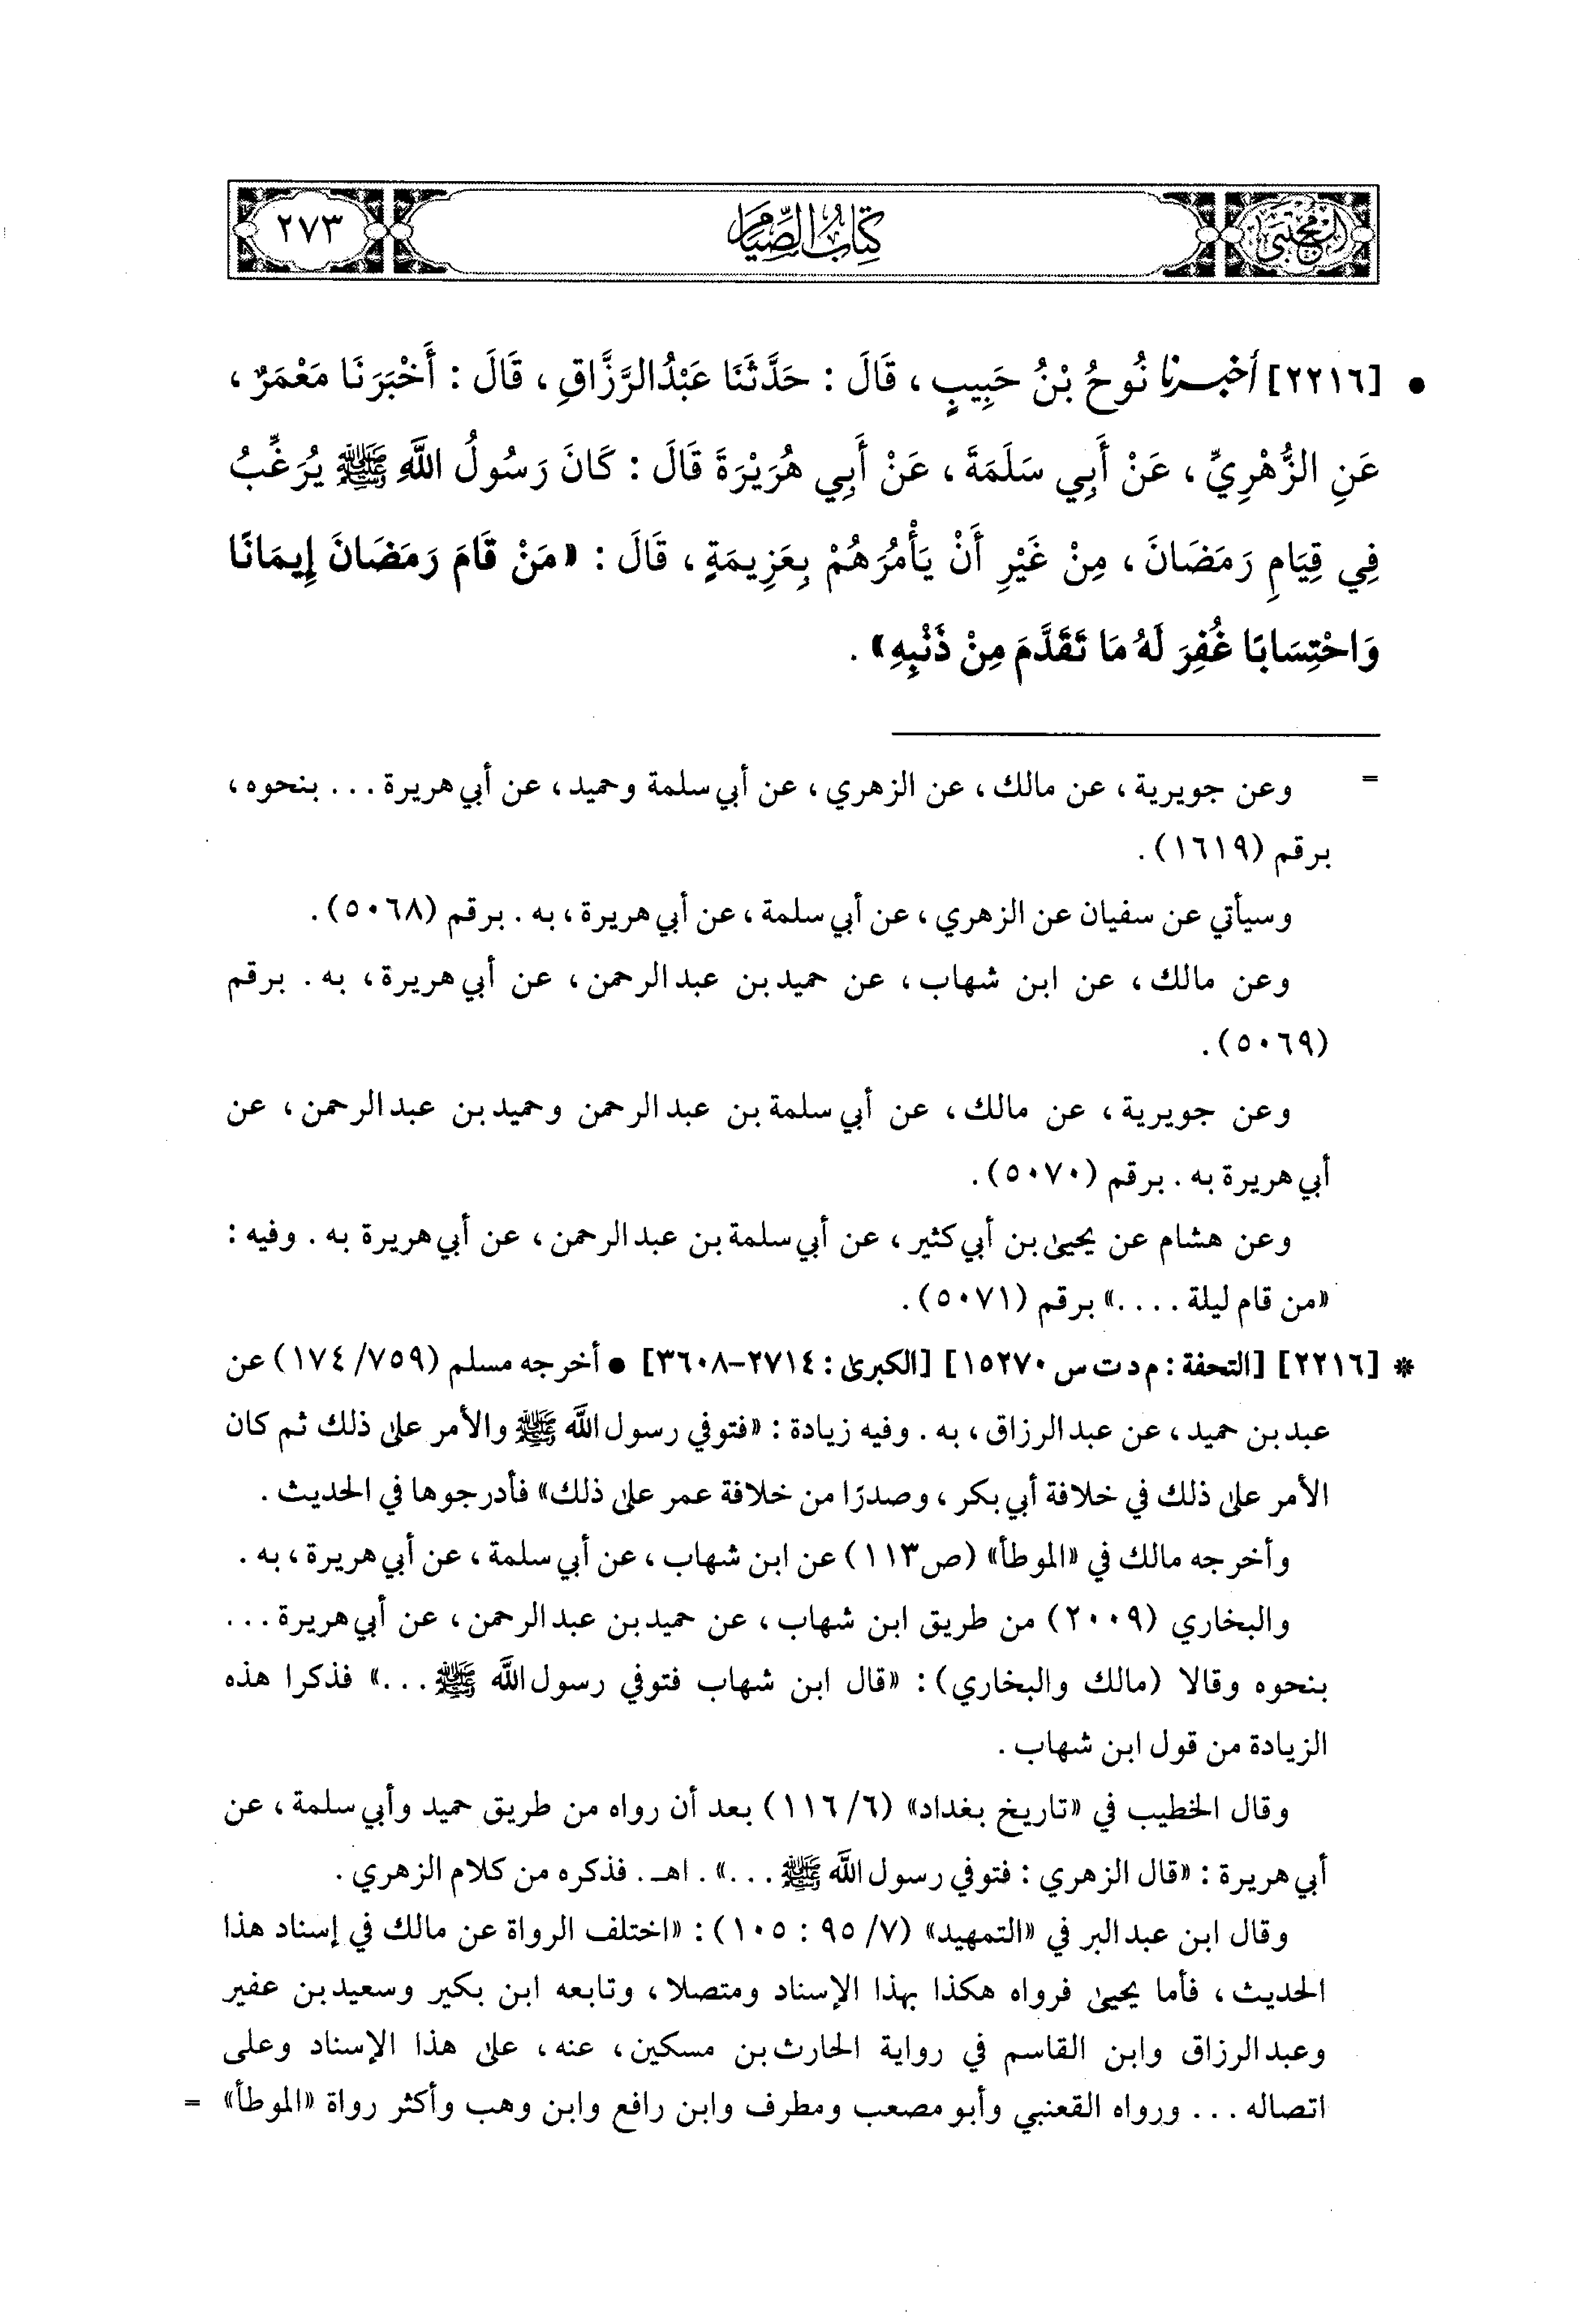 المجتبى
كتاب الصيام
٢٧٣
• [٢٢١٦] أخبرنا نُوحُ بْنُ حَبِيبٍ، قَالَ: حَدَّثَنَا عَبْدُالرَّزَّاقِ، قَالَ: أَخْبَرَنَا مَعْمَرٌ،
عَنِ الزُّهْرِيِّ، عَنْ أَبِي سَلَمَةَ، عَنْ أَبِي هُرَيْرَةَ قَالَ: كَانَ رَسُولُ اللَّهِ ﷺ يُرَغِّبُ
فِي قِيَامِ رَمَضَانَ، مِنْ غَيْرِ أَنْ يَأْمُرَهُمْ بِعَزِيمَةٍ، قَالَ: «مَنْ قَامَ رَمَضَانَ إِيمَانًا
وَاحْتِسَابًا غُفِرَ لَهُ مَا تَقَدَّمَ مِنْ ذَنْبِهِ».
= وعن جويرية، عن مالك، عن الزهري، عن أبي سلمة وحميد، عن أبي هريرة ... بنحوه،
برقم (١٦١٩).
وسيأتي عن سفيان عن الزهري، عن أبي سلمة، عن أبي هريرة، به. برقم (٥٠٦٨).
وعن مالك، عن ابن شهاب، عن حميد بن عبد الرحمن، عن أبي هريرة، به. برقم
(٥٠٦٩).
وعن جويرية، عن مالك، عن أبي سلمة بن عبد الرحمن وحميد بن عبد الرحمن، عن
أبي هريرة به. برقم (٥٠٧٠).
وعن هشام عن يحيى بن أبي كثير، عن أبي سلمة بن عبد الرحمن، عن أبي هريرة به. وفيه:
«من قام ليلة ....» برقم (٥٠٧١).
* [٢٢١٦] [التحفة: م د ت س ١٥٢٧٠] [الكبرى: ٢٧١٤-٣٦٠٨] • أخرجه مسلم (٧٥٩/ ١٧٤) عن
عبد بن حميد، عن عبد الرزاق، به. وفيه زيادة: «فتوفي رسول اللَّه ﷺ والأمر على ذلك ثم كان
الأمر على ذلك في خلافة أبي بكر، وصدرًا من خلافة عمر على ذلك» فأدرجوها في الحديث.
وأخرجه مالك في «الموطأ» (ص١١٣) عن ابن شهاب، عن أبي سلمة، عن أبي هريرة، به.
والبخاري (٢٠٠٩) من طريق ابن شهاب، عن حميد بن عبد الرحمن، عن أبي هريرة ...
بنحوه وقالا (مالك والبخاري): «قال ابن شهاب فتوفي رسول اللَّه ﷺ ...» فذكرا هذه
الزيادة من قول ابن شهاب.
وقال الخطيب في «تاريخ بغداد» (٦/ ١١٦) بعد أن رواه من طريق حميد وأبي سلمة، عن
أبي هريرة: «قال الزهري: فتوفي رسول اللَّه ﷺ ...». اهـ. فذكره من كلام الزهري.
وقال ابن عبد البر في «التمهيد» (٧/ ٩٥ : ١٠٥): «اختلف الرواة عن مالك في إسناد هذا
الحديث، فأما يحيى فرواه هكذا بهذا الإسناد ومتصلا، وتابعه ابن بكير وسعيد بن عفير
وعبد الرزاق وابن القاسم في رواية الحارث بن مسكين، عنه، على هذا الإسناد وعلى
اتصاله ... ورواه القعنبي وأبو مصعب ومطرف وابن رافع وابن وهب وأكثر رواة «الموطأ» =